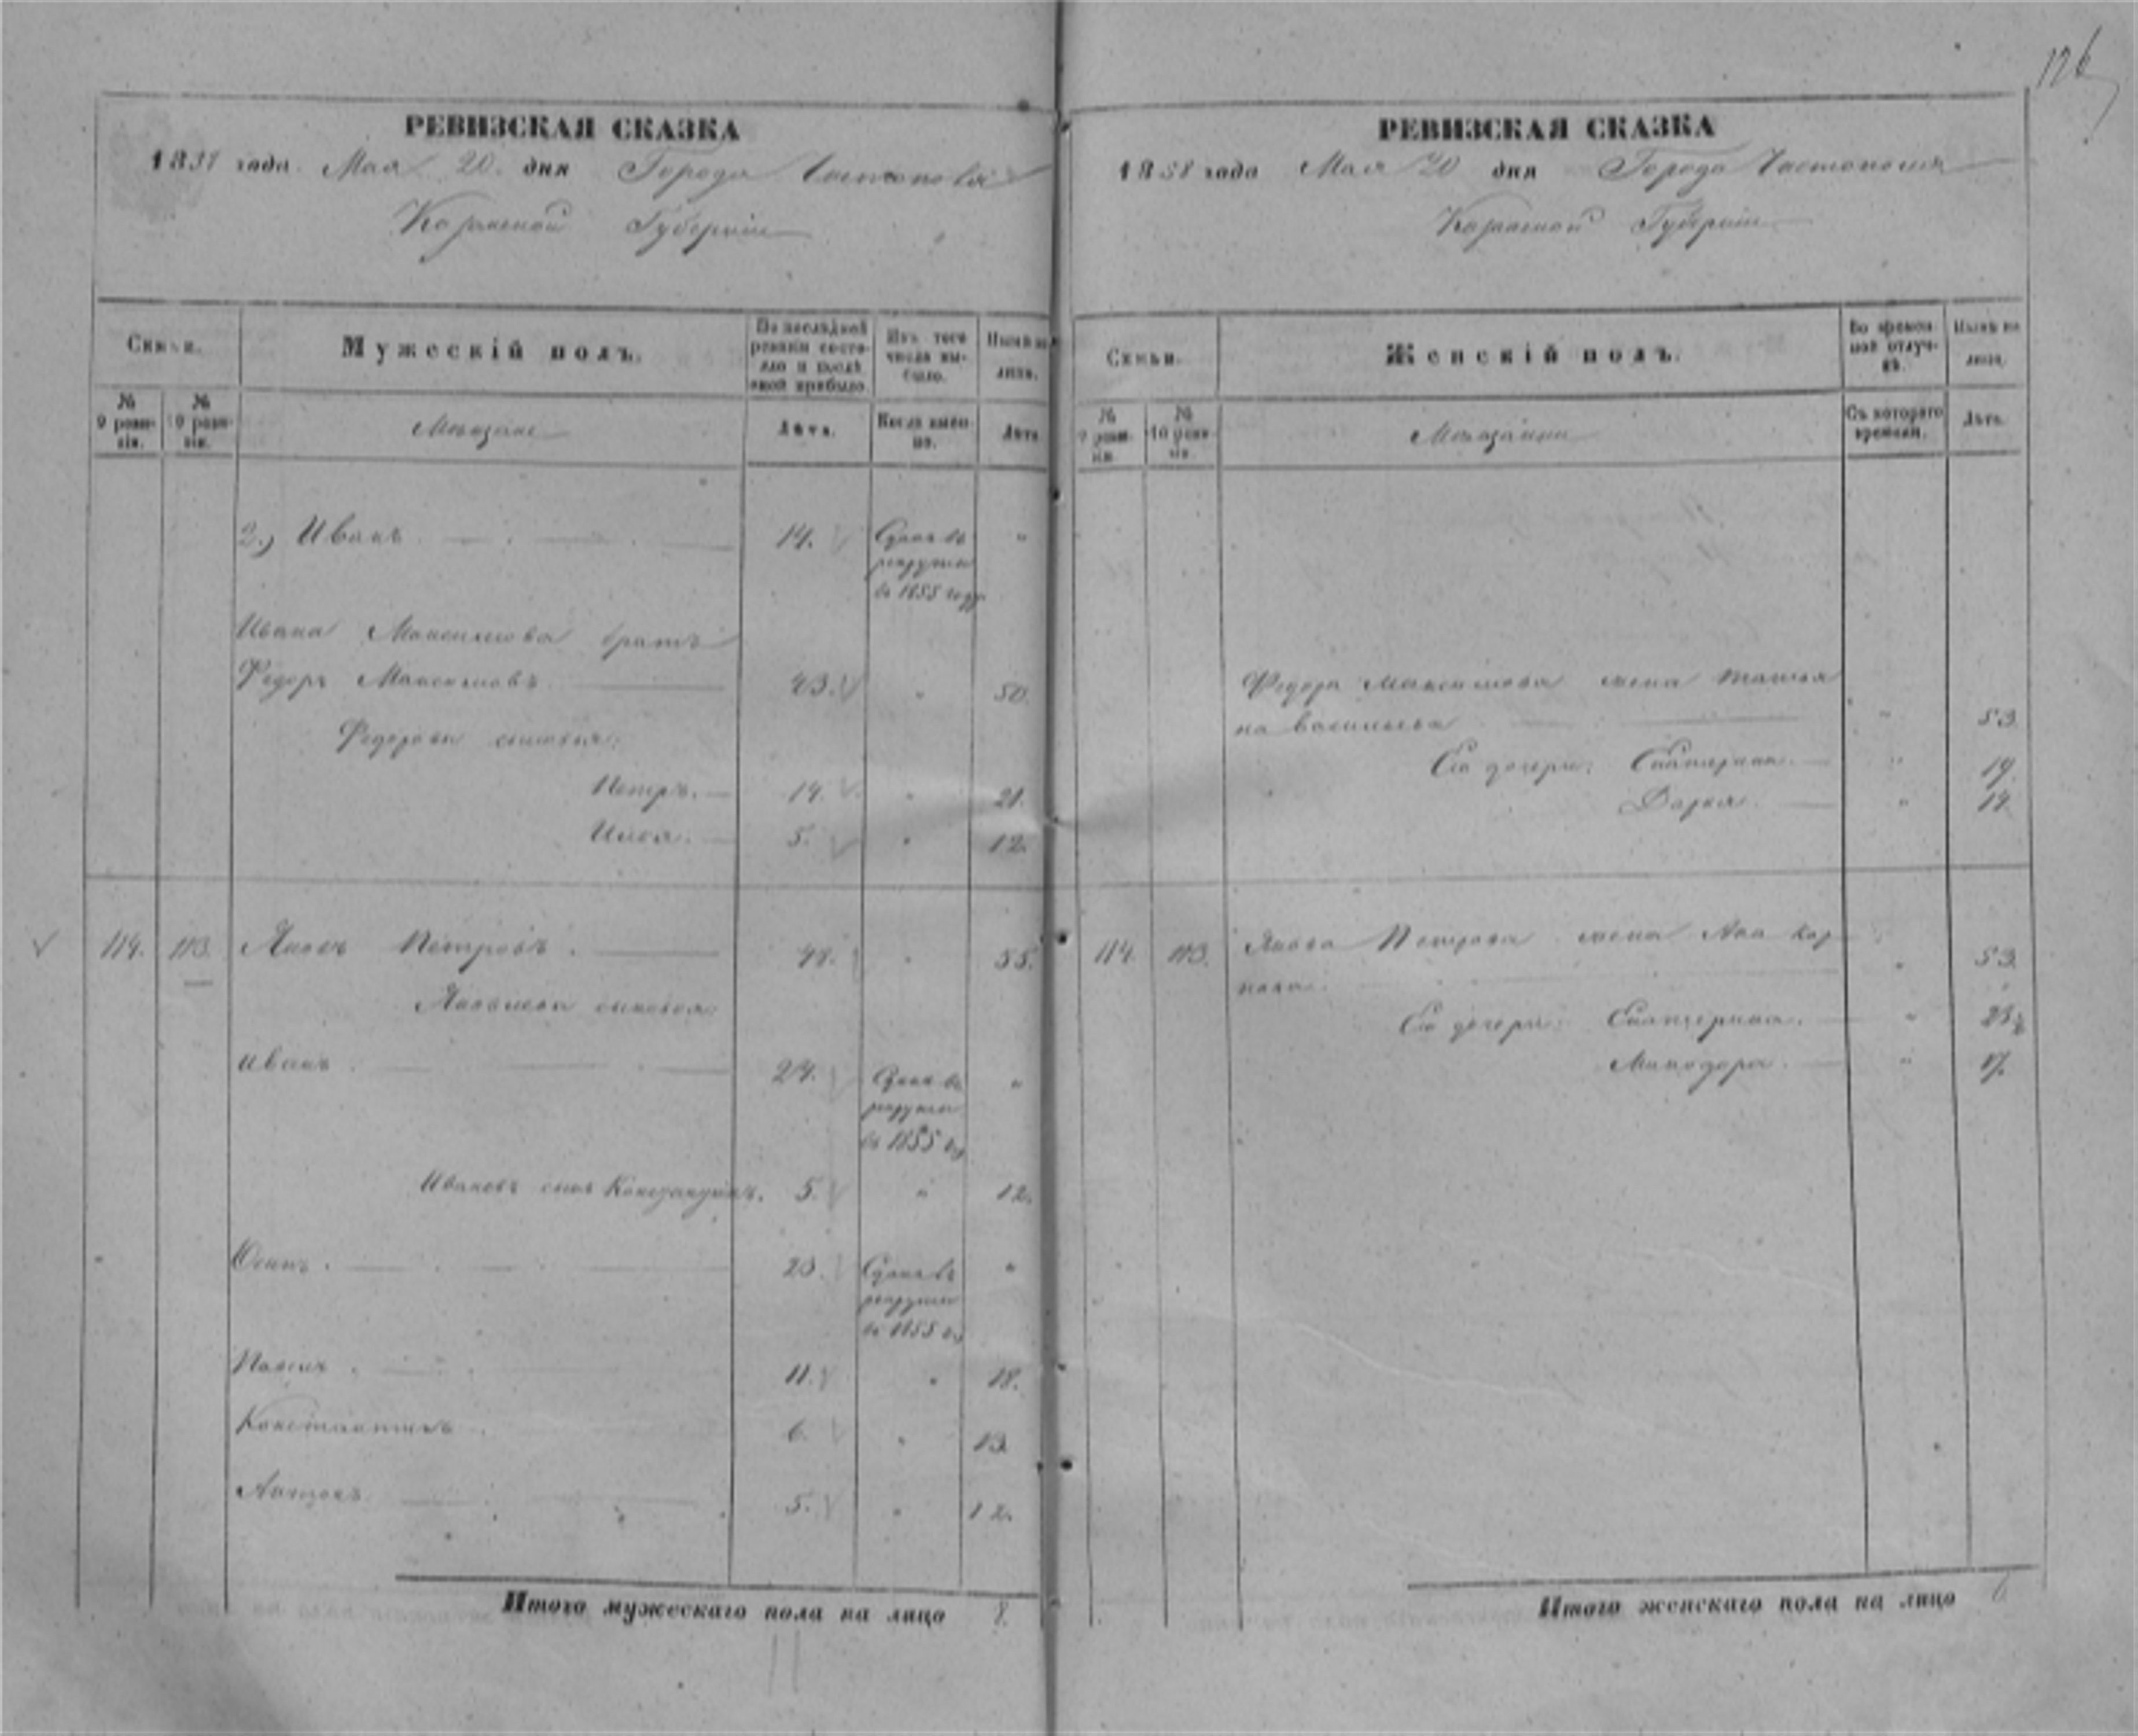 126
РЕВИЗСКАЯ СКАЗКА
1858 года Мая 20 дня Города Чистополя
Казанской Губернии
Семьи.
Мужескій полъ.
По послѣдней ревизіи состояло и послѣ оной прибыло.
Изъ того числа выбыло.
Нынѣ на лицо.
№ 9 ревизіи.
№ 10 ревизіи.
Мѣщане
Лѣта.
Когда именно.
Лѣта
2.) Иванъ 14. Сданъ въ
рекруты
въ 1855 году
Ивана Максимова братъ
Федоръ Максимовъ 43. 50.
Федоровы сыновья:
Петръ. 14. 21.
Илья. 5. 12.
114. 113. Яковъ Петровъ. 48. 55.
Яковлевы сыновья
Иванъ 24. Сданъ въ
рекруты
въ 1855 г.
Ивановъ сынъ 5. 12.
Осипъ. 23. Сданъ въ
рекруты
въ 1855 г.
Павелъ 11. 18.
Константинъ 6. 13.
Антонъ 5. 12.
Итого мужескаго пола на лицо 8.
РЕВИЗСКАЯ СКАЗКА
1858 года Мая 20 дня Города Чистополя
Казанской Губернии
Семьи.
Женскій полъ.
Во временной отлучкѣ.
Нынѣ на лицо.
№ 9 ревизіи
№ 10 ревизіи.
Мѣщанки
Съ котораго времени.
Лѣта.
Федора Максимова жена Татья
на Васильева 53.
Его дочери: Екатерина. 19.
Дарья. 14.
114. 113. Якова Петрова жена Ана Кар
пова. 53.
Его дочери: Екатерина. 23½
Минодора. 17.
Итого женскаго пола на лицо 6